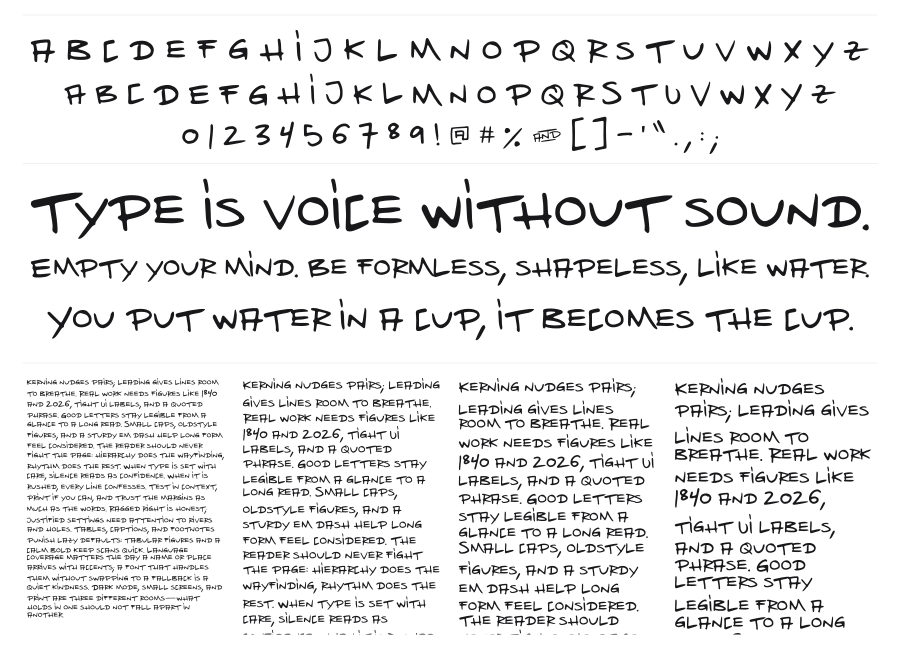 A B C D E F G H I J K L M N O P Q R S T U V W X Y Z
A B C D E F G H I J K L M N O P Q R S T U V W X Y Z
0 1 2 3 4 5 6 7 8 9 ! @ # % & [ ] - ' " . , : ;
TYPE IS VOICE WITHOUT SOUND.
EMPTY YOUR MIND. BE FORMLESS, SHAPELESS, LIKE WATER.
YOU PUT WATER IN A CUP, IT BECOMES THE CUP.
KERNING NUDGES PAIRS; LEADING GIVES LINES ROOM
TO BREATHE. REAL WORK NEEDS FIGURES LIKE 1840
AND 2026, TIGHT UI LABELS, AND A QUOTED
PHRASE. GOOD LETTERS STAY LEGIBLE FROM A
GLANCE TO A LONG READ. SMALL CAPS, OLDSTYLE
FIGURES, AND A STURDY EM DASH HELP LONG FORM
FEEL CONSIDERED. THE READER SHOULD NEVER
FIGHT THE PAGE: HIERARCHY DOES THE WAYFINDING,
RHYTHM DOES THE REST. WHEN TYPE IS SET WITH
CARE, SILENCE READS AS CONFIDENCE. WHEN IT IS
RUSHED, EVERY LINE CONFESSES. TEST IN CONTEXT,
PRINT IF YOU CAN, AND TRUST THE MARGINS AS
MUCH AS THE WORDS. RAGGED RIGHT IS HONEST,
JUSTIFIED SETTINGS NEED ATTENTION TO RIVERS
AND HOLES. TABLES, CAPTIONS, AND FOOTNOTES
PUNISH LAZY DEFAULTS: TABULAR FIGURES AND A
CALM BOLD KEEP SCANS QUICK. LANGUAGE
COVERAGE MATTERS THE DAY A NAME OR PLACE
ARRIVES WITH ACCENTS; A FONT THAT HANDLES
THEM WITHOUT SWAPPING TO A FALLBACK IS A
QUIET KINDNESS. DARK MODE, SMALL SCREENS, AND
PRINT ARE THREE DIFFERENT ROOMS—WHAT
HOLDS IN ONE SHOULD NOT FALL APART IN
ANOTHER.
KERNING NUDGES PAIRS; LEADING
GIVES LINES ROOM TO BREATHE.
REAL WORK NEEDS FIGURES LIKE
1840 AND 2026, TIGHT UI
LABELS, AND A QUOTED
PHRASE. GOOD LETTERS STAY
LEGIBLE FROM A GLANCE TO A
LONG READ. SMALL CAPS,
OLDSTYLE FIGURES, AND A
STURDY EM DASH HELP LONG
FORM FEEL CONSIDERED. THE
READER SHOULD NEVER FIGHT
THE PAGE: HIERARCHY DOES THE
WAYFINDING, RHYTHM DOES THE
REST. WHEN TYPE IS SET WITH
CARE, SILENCE READS AS
KERNING NUDGES PAIRS;
LEADING GIVES LINES
ROOM TO BREATHE. REAL
WORK NEEDS FIGURES LIKE
1840 AND 2026, TIGHT UI
LABELS, AND A QUOTED
PHRASE. GOOD LETTERS
STAY LEGIBLE FROM A
GLANCE TO A LONG READ.
SMALL CAPS, OLDSTYLE
FIGURES, AND A STURDY
EM DASH HELP LONG
FORM FEEL CONSIDERED.
THE READER SHOULD
KERNING NUDGES
PAIRS; LEADING GIVES
LINES ROOM TO
BREATHE. REAL WORK
NEEDS FIGURES LIKE
1840 AND 2026,
TIGHT UI LABELS,
AND A QUOTED
PHRASE. GOOD
LETTERS STAY
LEGIBLE FROM A
GLANCE TO A LONG